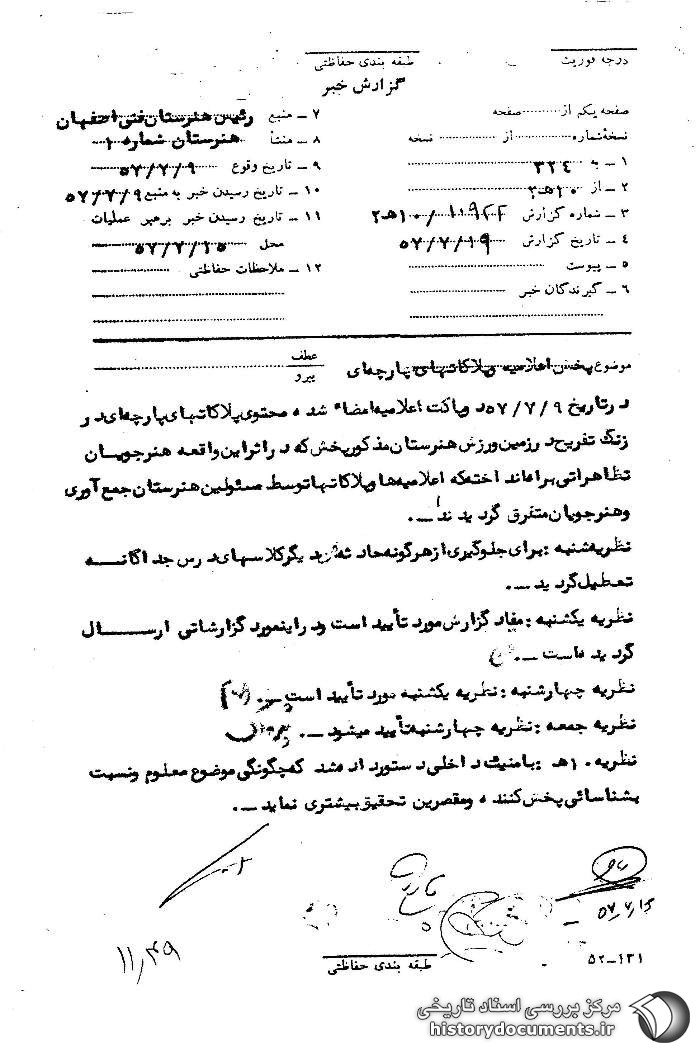 درجه فوریت
طبقه بندی حفاظتی
گزارش خبر
صفحه یکم از ............ صفحه
نسخه شماره ............ از ............ نسخه
۱ ــ به ۳۲٤
۲ ــ از ۱۰هـ۲
۳ ــ شماره گزارش ۱۰/هـ۲
٤ ــ تاریخ گزارش ۵۷/۷/۱۹
۵ ــ پیوست
۶ ــ گیرندگان خبر
۷ ــ منبع رئیس هنرستان فنی اصفهان
۸ ــ منشأ هنرستان شماره ۱
۹ ــ تاریخ وقوع ۵۷/۷/۹
۱۰ ــ تاریخ رسیدن خبر به منبع ۵۷/۷/۹
۱۱ ــ تاریخ رسیدن خبر برهبر عملیات
محل ۵۷/۷/۱۵
۱۲ ــ ملاحظات حفاظتی
موضوع پخش اعلامیه و پلاکاتهای پارچه‌ای
عطف
پیرو
در تاریخ ۵۷/۷/۹ دو پاکت اعلامیه امضاء شده محتوی پلاکاتهای پارچه‌ای در
زنگ تفریح در زمین ورزش هنرستان مذکور پخش که در اثر این واقعه هنرجویان
تظاهراتی براه انداخته که اعلامیه‌ها و پلاکاتها توسط مسئولین هنرستان جمع آوری
و هنرجویان متفرق گردیدند ــ.
نظریه شنبه : برای جلوگیری از هرگونه حادثه دیگر کلاسهای درس جداگانه
تعطیل گردید ــ.
نظریه یکشنبه : مفاد گزارش مورد تأیید است و در اینمورد گزارشاتی ارسال
گردیده است ــ.
نظریه چهارشنبه : نظریه یکشنبه مورد تأیید است ــ.
نظریه جمعه : نظریه چهارشنبه تأیید میشود ــ.
نظریه ۱۰هـ : بامنیت داخلی دستور داده شد که چگونگی موضوع معلوم و نسبت
بشناسائی پخش کننده و مقصرین تحقیق بیشتری نماید ــ.
۱۱٫۴۹
طبقه بندی حفاظتی
۵۲ــ۱۳۱
مرکز بررسی اسناد تاریخی
historydocuments.ir